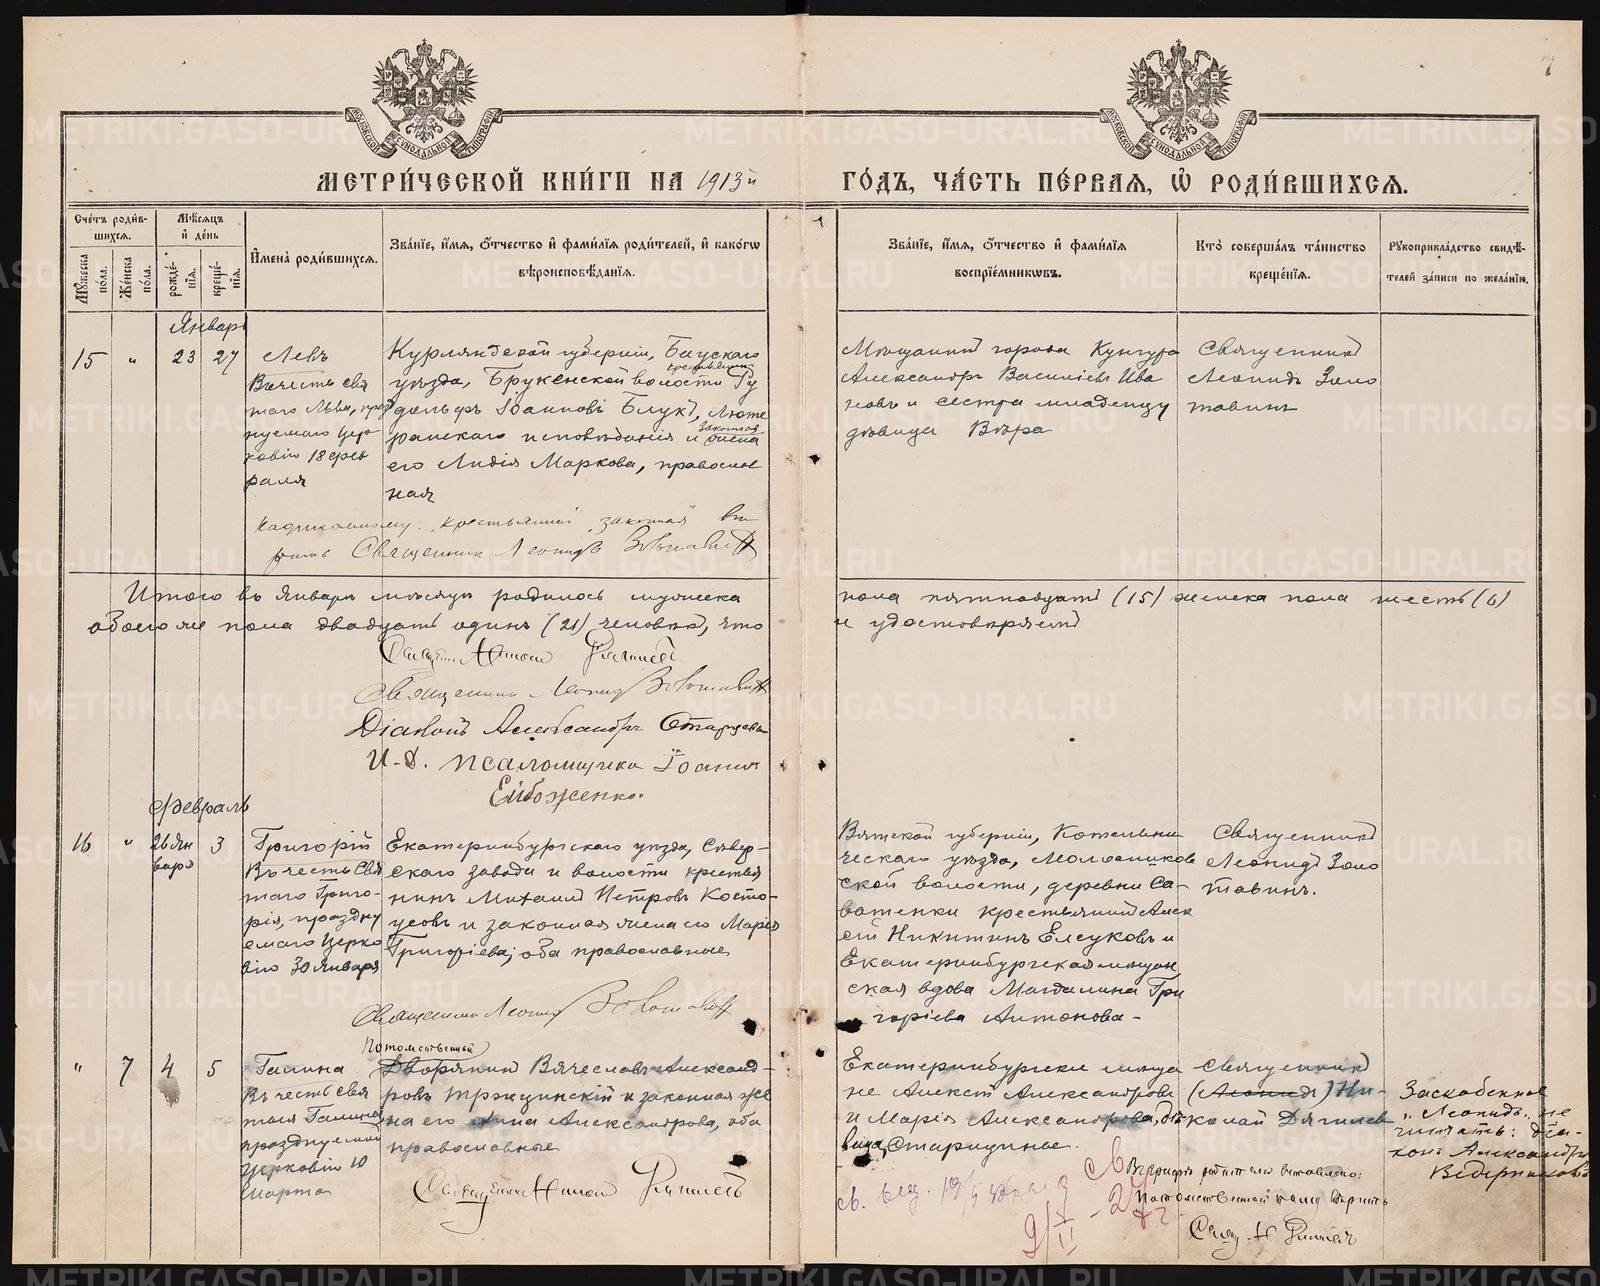 МЕТРИ́ЧЕСКОЙ КНИ́ГИ НА 1913й ГО́ДЪ, ЧА́СТЬ ПЕ́РВАЯ, Ѡ РОДИ́ВШИХСЯ.
Сче́тъ роди́в-
шихся.
Мѣ́сяцъ
и де́нь
Мꙋ́жеска по́ла.
Же́нска по́ла.
рожде́-
нія.
креще́-
нія.
И҆мена̀ роди́вшихся.
Зва́ніе, и҆́мя, ѻ҆́тчество и҆ фами́лія роди́телей, и҆ како́гѡ
вѣроисповѣ́данія.
Зва́ніе, и҆́мя, ѻ҆́тчество и҆ фами́лія
воспріе́мниковъ.
Кто̀ соверша́лъ та́инство
креще́нія.
Рꙋкоприкла́дство свидѣ́-
телей за́писи по жела́нію.
Январь
15 " 23 27
Левъ
Въ честь свя
таго Льва, празд
нуемаго Цер
ковію 18 фев
раля
Курляндской губерніи, Баускаго
уѣзда, Брукенской волости крестьянинъ Ру
дольфъ Іоанновъ Блукъ, люте
ранскаго исповѣданія и законная жена
его Лидія Маркова, православ
ная
Мѣщанинъ города Кунгура
Александръ Васильевъ Ива
новъ и сестра младенцу
дѣвица Вѣра
Священникъ
Леонидъ Золо
тавинъ
Надписанному: "крестьянинъ", "законная" вѣ
рить Священникъ Леонидъ Золотавинъ
Итого въ Январѣ мѣсяцѣ родилось мужеска пола пятнадцать (15) женска пола шесть (6)
обоего же пола двадцать одинъ (21) человѣкъ, что и удостовѣряемъ
Священникъ Леонидъ Золотавинъ
Діаконъ Александръ Старцевъ
И.д. псаломщика Іоаннъ
Февраль
16 " 26 Ян
варя 3
Григорій
Въ честь Свя
таго Григо-
рія, праздну
емаго Церко
вію 30 Января
Екатеринбургскаго уѣзда, Сѣвер-
скаго завода и волости крестья
нинъ Михаилъ Петровъ Косто-
усовъ и законная жена его Марія
Григорьева; оба православные
Священникъ Леонидъ Золотавинъ
Вятской губерніи, Котельни
ческаго уѣзда, Молотников
ской волости, деревни Са-
ватенки крестьянинъ Алек
сѣй Никитинъ Елсуковъ и
Екатеринбургская мѣщан
ская вдова Магдалина Гри
горіева Антонова-
Священникъ
Леонидъ Золо
тавинъ.
" 7 4 5
Галина
Въ честь свя
тыя Галины
празднуемой
Церковію 10
Марта
Потомственный
Дворянинъ Вячеславъ Александ-
ровъ Тржцинскій и законная же
на его Анна Александрова, оба
православные
Екатеринбургскіе мѣща
не Алексѣй Александровъ
и Марія Александрова, дѣ
вица, Старицыны.
Священникъ
(Леонидъ) Ни-
колай Дягилевъ
Заскобенное
"Леонидъ" не
читать: діа-
конъ Александръ
Ведерниковъ
Въ графѣ родители вставлено:
Потомственный тому вѣрить